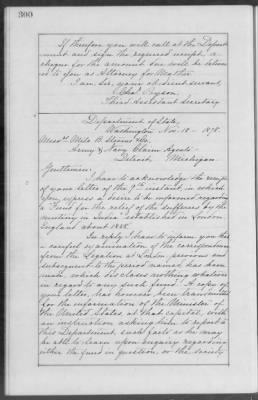 300
If therefore you will call at the Depart-
ment and sign the required receipt, a
cheque for the amount due will be delivered
to you as Attorney for Mather.
I am, Sir, your obedient servant,
Chas. Payson,
Third Assistant Secretary
Department of State,
Washington Nov. 18 - 1878.
Messrs. Milo B. Stevens & Co,
Army & Navy Claim Agents
Detroit, Michigan.
Gentlemen:
I have to acknowledge the receipt
of your letter of the 9th instant, in which
you express a desire to be informed regarding
a "Fund for the relief of the sufferers by the
mutiny in India" established in London
England about 1858.
In reply I have to inform you that
a careful examination of the correspondence
from the Legation at London previous and
subsequent to the period named has been
made, which discloses nothing whatever
in regard to any such fund. A copy of
your letter, has however been transmitted
for the information of the Minister of
the United States at that capital, with
an instruction asking him to report to
this Department, such facts as he may
be able to learn upon enquiry regarding
either the fund in question, or the society